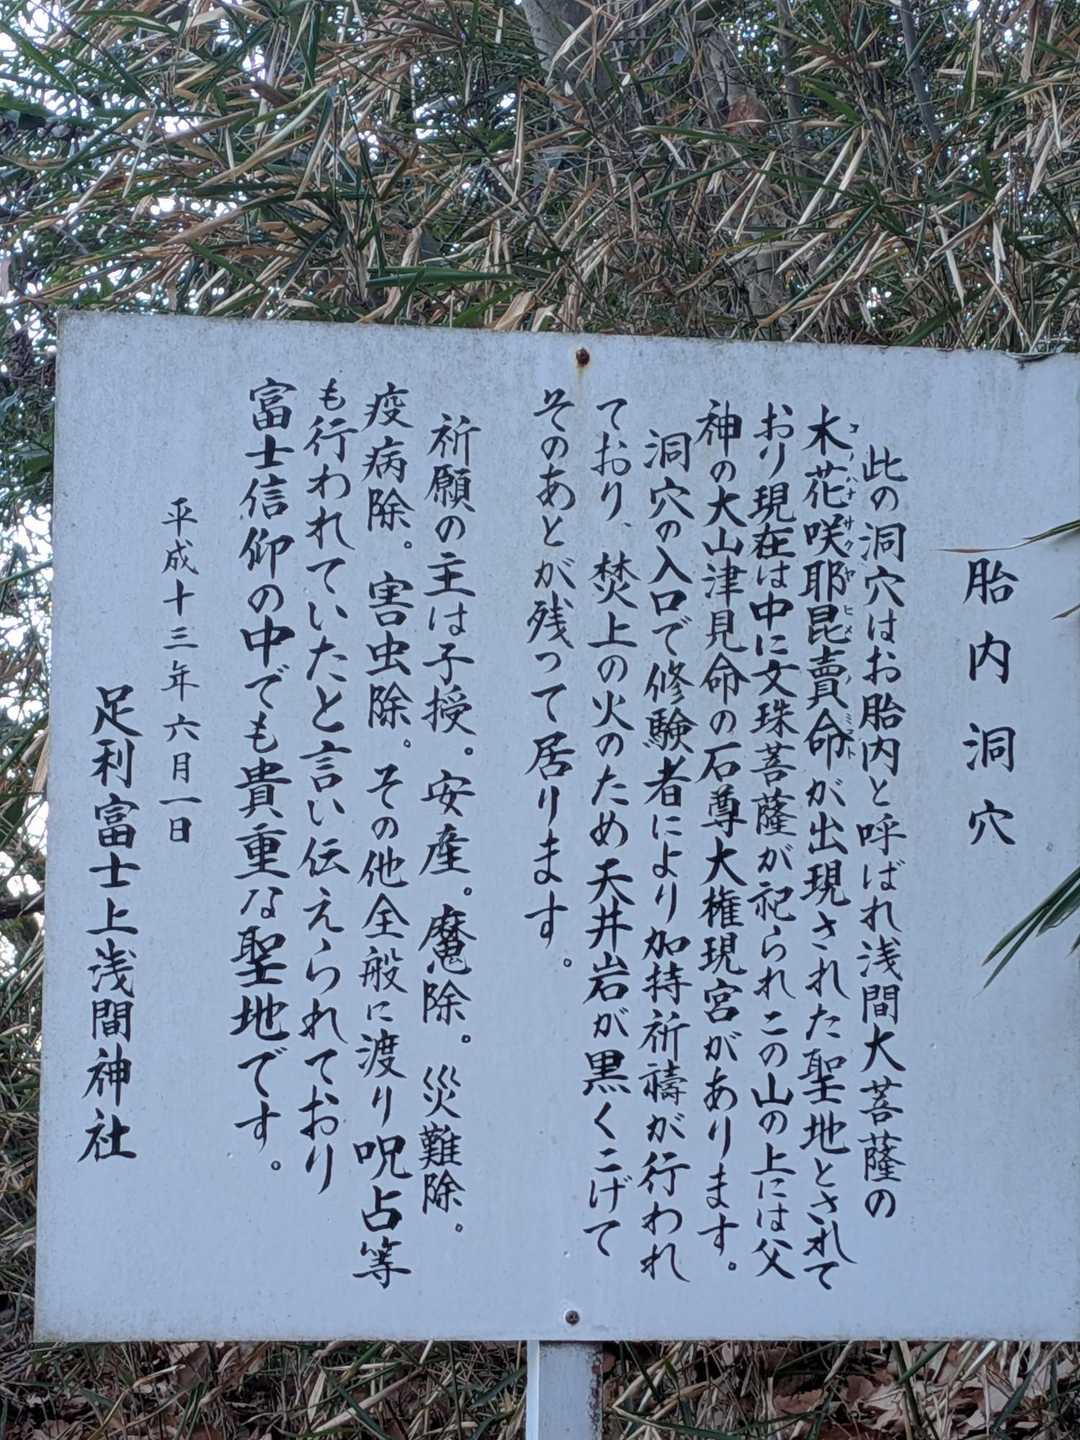 胎内洞穴
此の洞穴はお胎内と呼ばれ浅間大菩薩の
木花咲耶昆賣命が出現された聖地とされて
コノハナサクヤヒメノミコト
おり現在は中に文珠菩薩が祀られこの山の上には父
神の大山津見命の石尊大権現宮があります。
洞穴の入口で修験者により加持祈禱が行われ
ており、焚上の火のため天井岩が黒くこげて
そのあとが残って居ります。
祈願の主は子授。安産。魔除。災難除。
疫病除。害虫除。その他全般に渡り呪占等
も行われていたと言い伝えられており
富士信仰の中でも貴重な聖地です。
平成十三年六月一日
足利富士上浅間神社